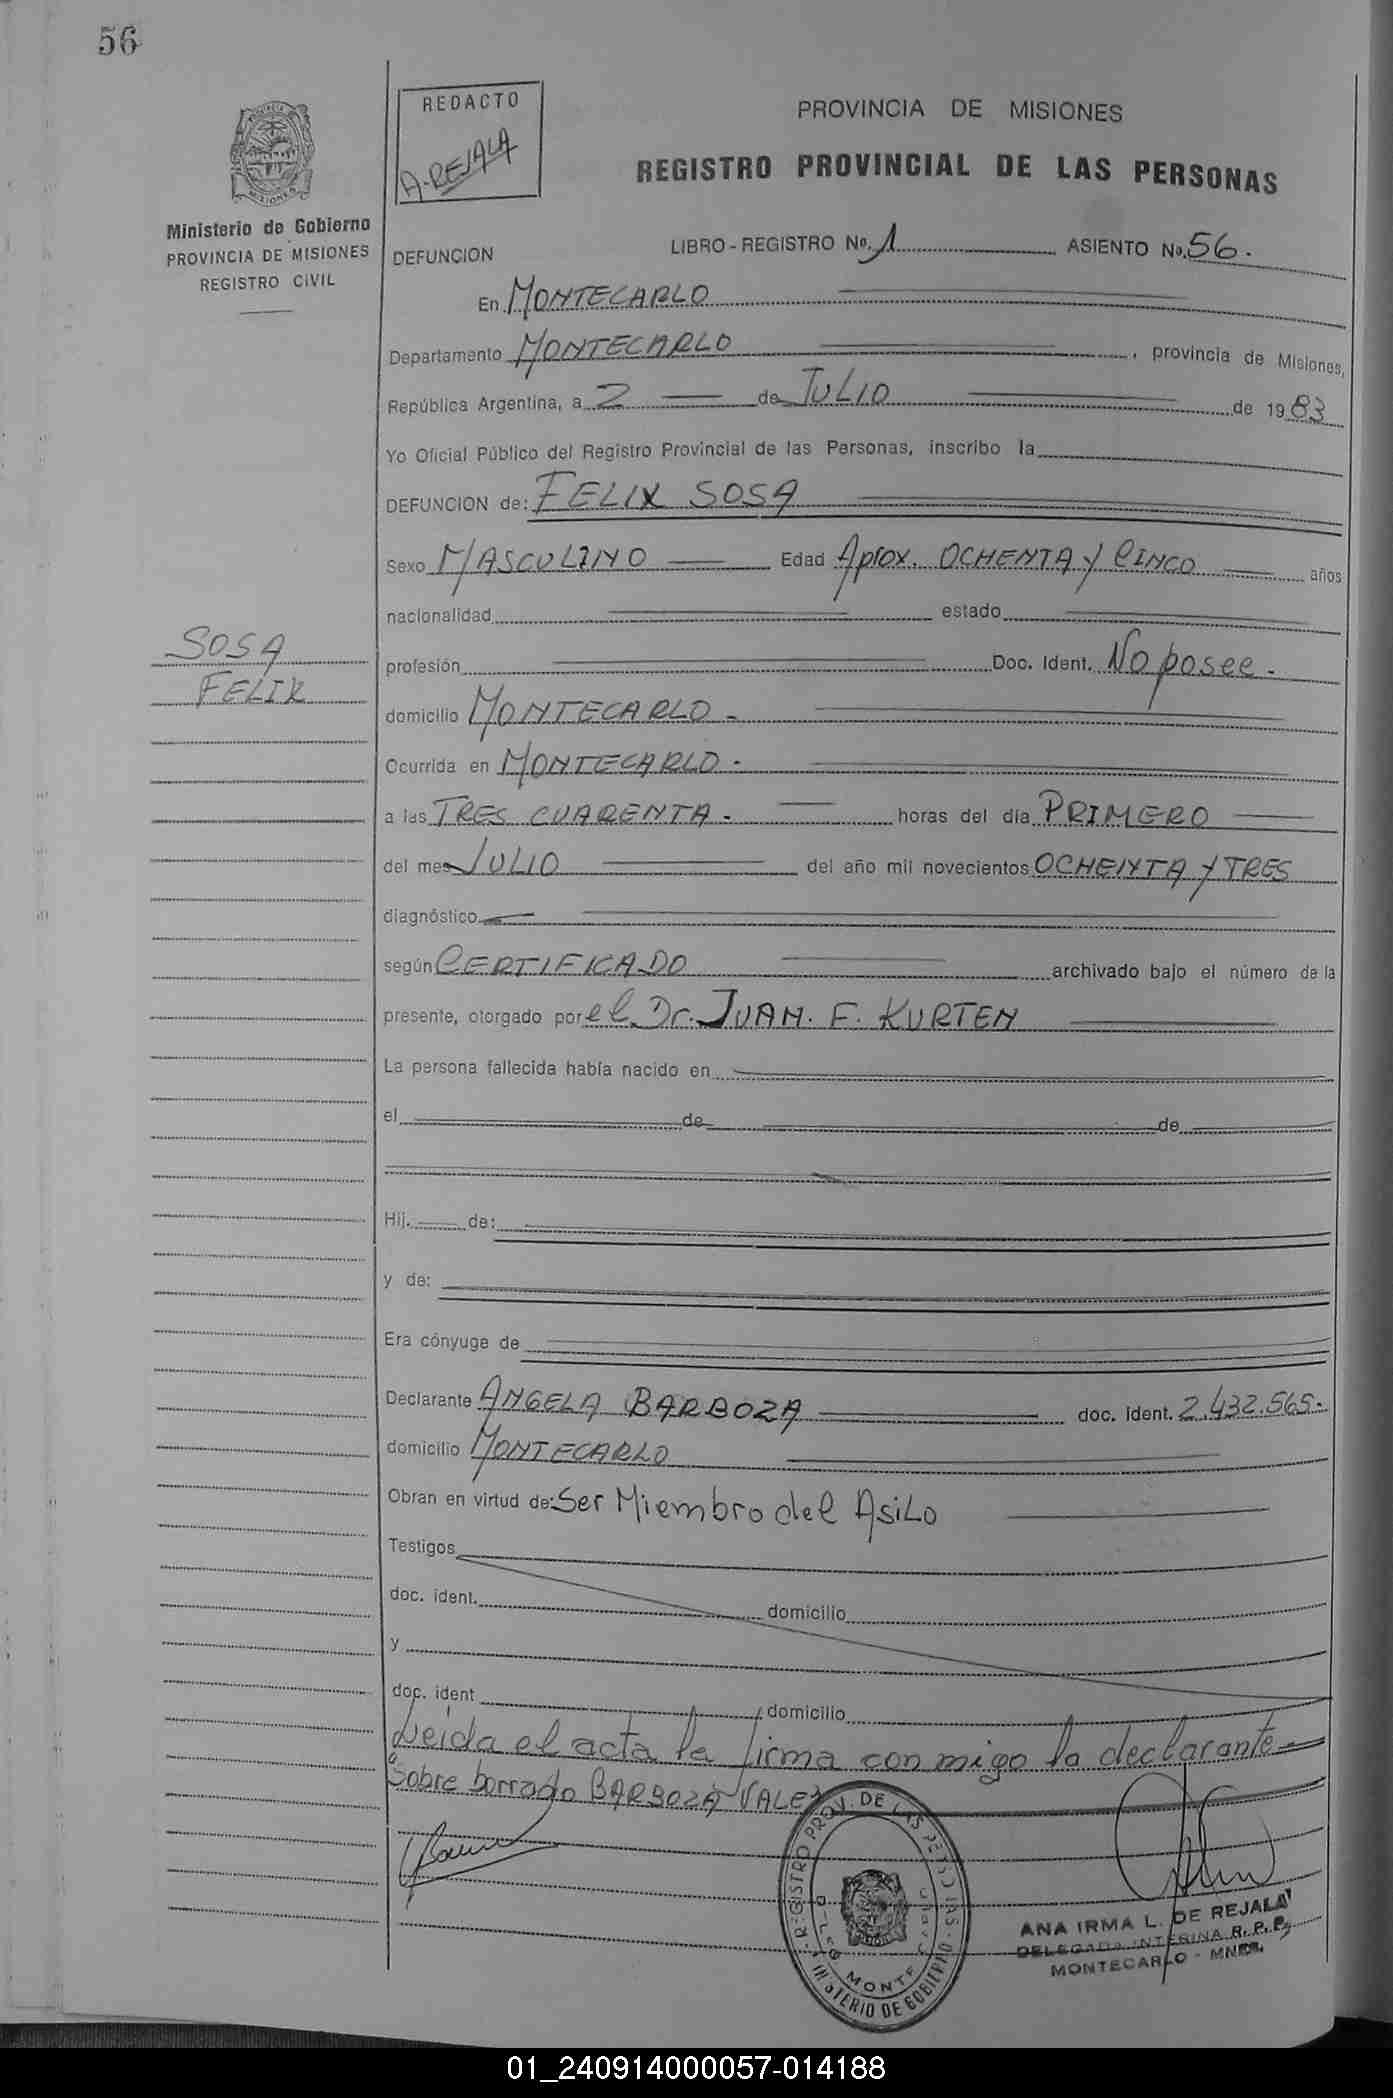 56
REDACTO
A. REJALA
PROVINCIA DE MISIONES
REGISTRO PROVINCIAL DE LAS PERSONAS
Ministerio de Gobierno
PROVINCIA DE MISIONES
REGISTRO CIVIL
DEFUNCION
LIBRO - REGISTRO No. 1 ASIENTO No. 56.
En MONTECARLO
Departamento MONTECARLO, provincia de Misiones,
República Argentina, a 2 de JULIO de 1983
Yo Oficial Público del Registro Provincial de las Personas, inscribo la
DEFUNCION de: FELIX SOSA
Sexo MASCULINO Edad Aprox. OCHENTA Y CINCO años
nacionalidad estado
SOSA
FELIX
profesión Doc. Ident. No posee.
domicilio MONTECARLO.
Ocurrida en MONTECARLO.
a las TRES CUARENTA. horas del día PRIMERO
del mes JULIO del año mil novecientos OCHENTA Y TRES
diagnóstico
según CERTIFICADO archivado bajo el número de la
presente, otorgado por el Dr. JUAN. F. KURTEN
La persona fallecida había nacido en
el de de
Hij. de:
y de:
Era cónyuge de
Declarante ANGELA BARBOZA doc. ident. 2.432.565.
domicilio MONTECARLO
Obran en virtud de: Ser Miembro del Asilo
Testigos
doc. ident. domicilio
y
doc. ident domicilio
Leída el acta la firma con migo la declarante
Sobre borrado BARBOZA VALE
REGISTRO PROV. DE LAS PERSONAS
MINISTERIO DE GOBIERNO
ANA IRMA L. DE REJALA
DELEGADA INTERINA R. P. P.
MONTECARLO - MNES.
01_240914000057-014188